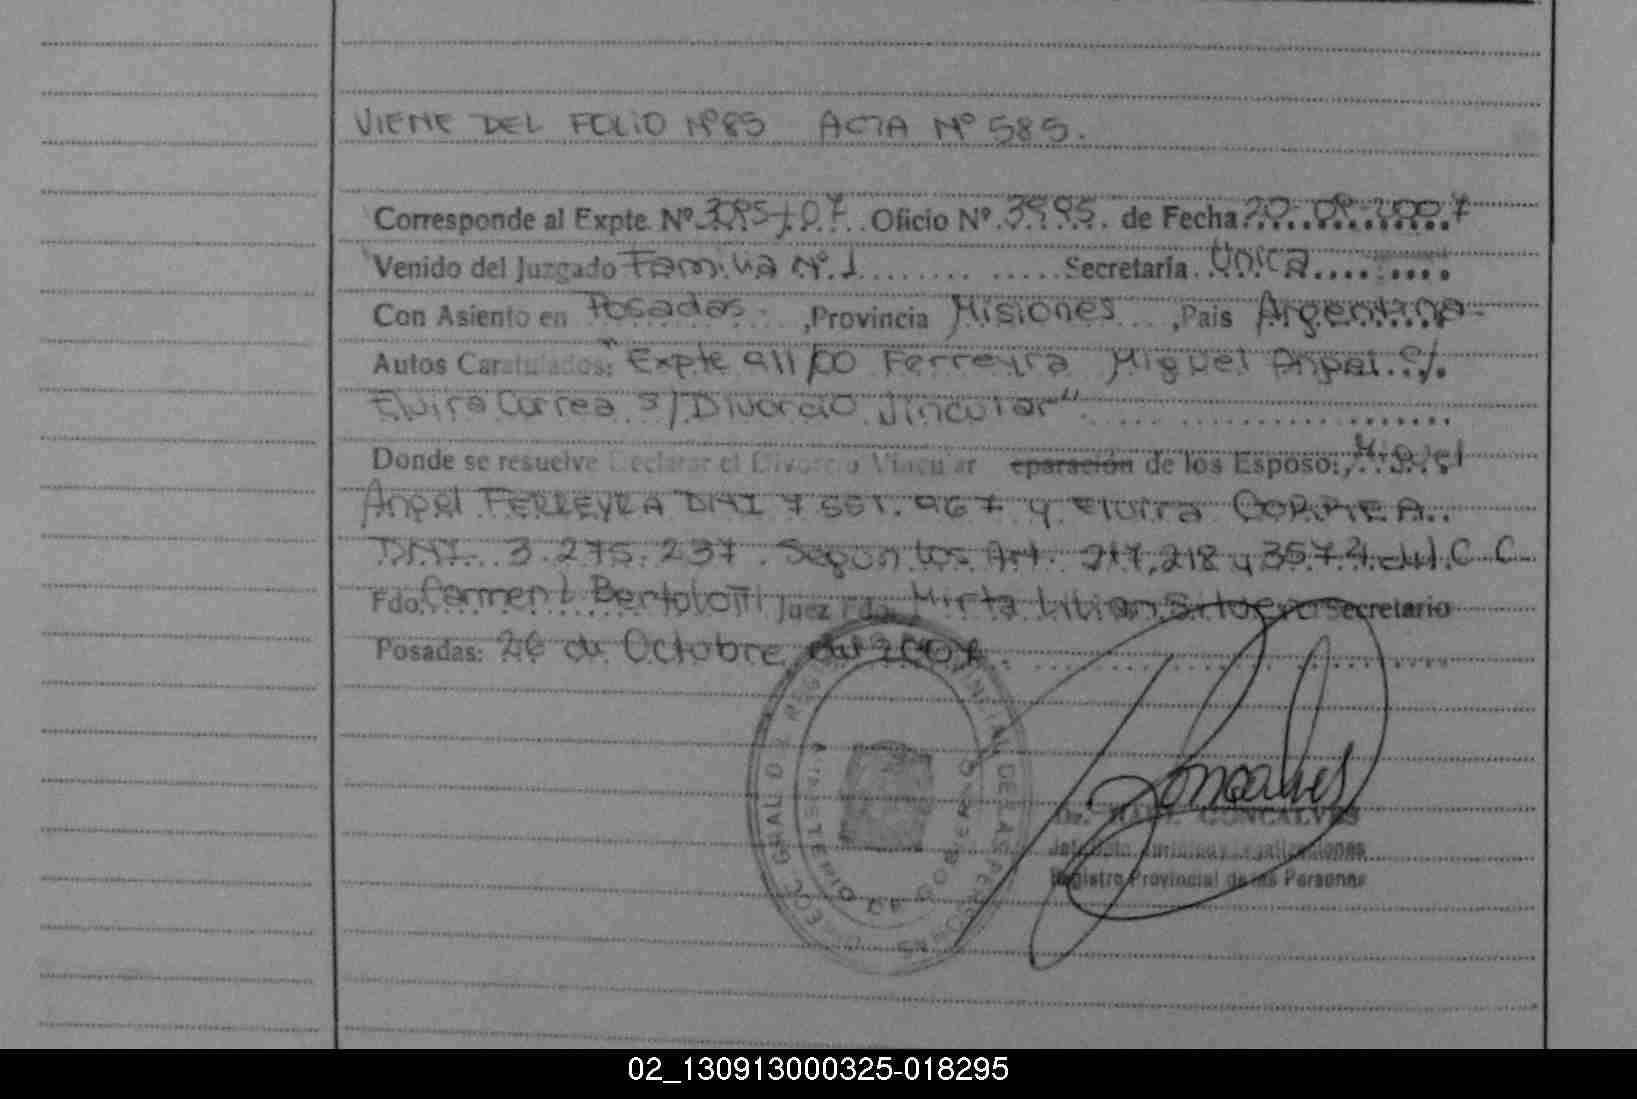 VIENE DEL FOLIO Nº 85 ACTA Nº 585.
Corresponde al Expte. Nº 3085/07. Oficio Nº 3995. de Fecha 20-09-2007
Venido del Juzgado Familia Nº 1 Secretaría Única
Con Asiento en Posadas, Provincia Misiones, Pais Argentina
Autos Caratulados: "Expte 911/00 Ferreyra Miguel Angel c/.
Elvira Correa s/Divorcio Vincular"
Donde se resuelve Declarar el Divorcio Vincular eparación de los Esposo: Miguel
Angel FERREYRA DNI 7.551.967 y Elvira CORREA.
DNI. 3.275.237. Segun los Art. 217, 218 y 3574 del C.C.
Fdo. Carmen L Bertolotti Juez Fdo. Mirta Lilian Secretario
Posadas: 26 de Octubre del 2007.
GOBIERNO
Goncalves
Dr. GONCALVES
Registro Provincial de las Personas
02_130913000325-018295